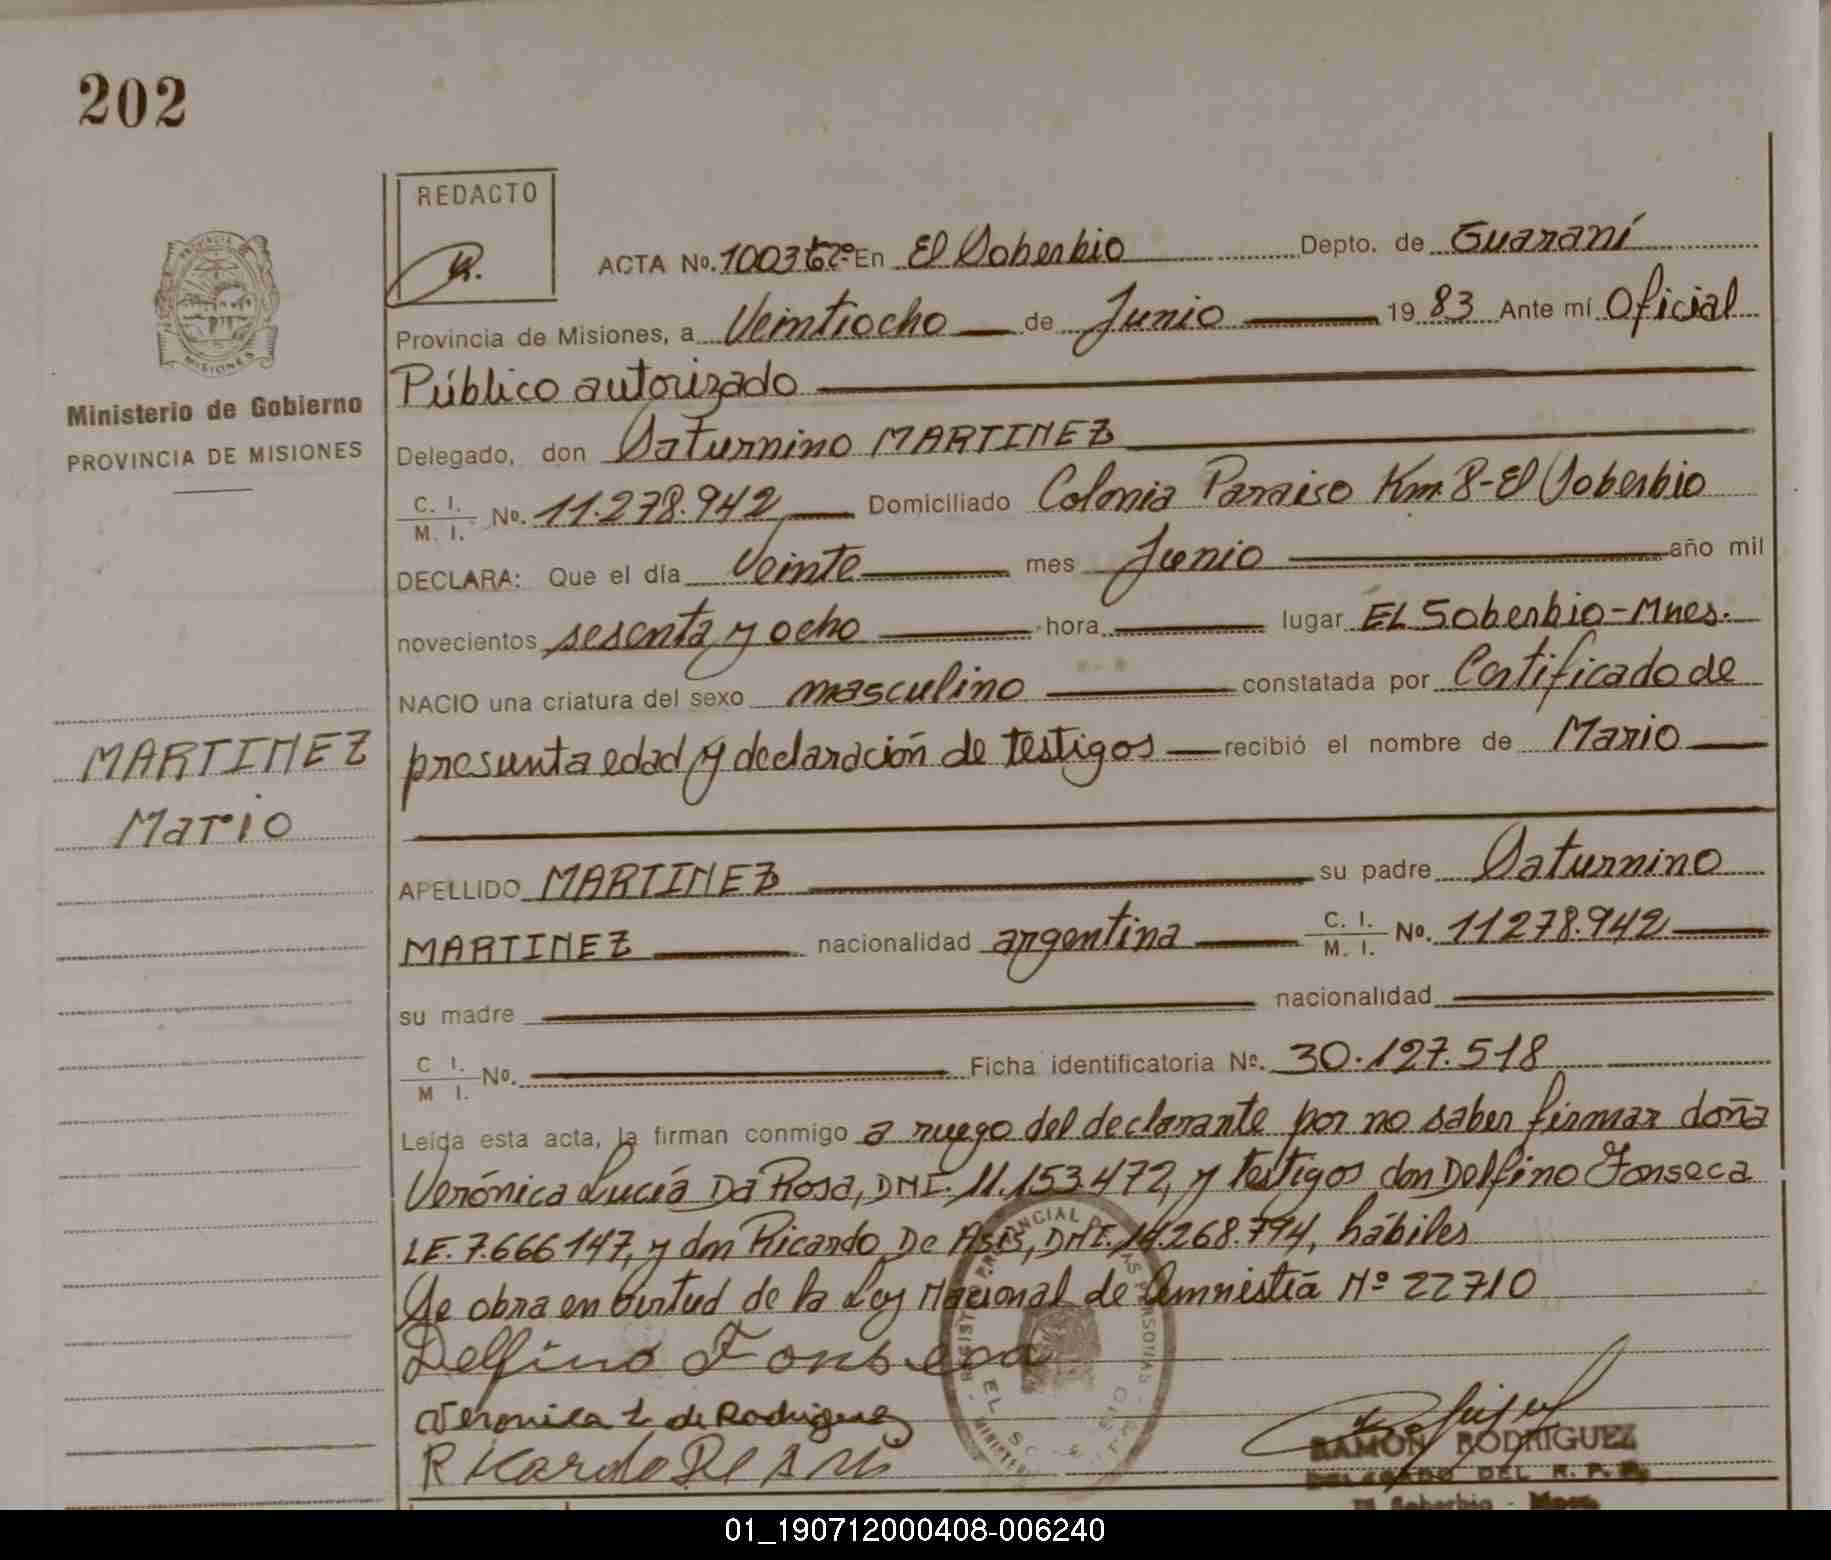 202
REDACTO
ACTA No. En El Soberbio Depto. de Guaraní
Provincia de Misiones, a Veintiocho de Junio 1983 Ante mí Oficial
Público autorizado
Ministerio de Gobierno
PROVINCIA DE MISIONES
Delegado, don Saturnino MARTINEZ
C. I. / M. I. No. 11.278.942 Domiciliado Colonia Paraiso Km. 8-El Soberbio
DECLARA: Que el día Veinte mes Junio año mil
novecientos sesenta y ocho hora lugar EL Soberbio-Mnes.
NACIO una criatura del sexo masculino constatada por Certificado de
presunta edad y declaración de testigos recibió el nombre de Mario
MARTINEZ
Mario
APELLIDO MARTINEZ su padre Saturnino
MARTINEZ nacionalidad argentina C. I. / M. I. No. 11278.942
su madre nacionalidad
C I. / M I. No. Ficha identificatoria No. 30.127.518
Leída esta acta, la firman conmigo a ruego del declarante por no saber firmar doña
Verónica Lucía Da Rosa, DNI. 11.153.472, y testigos don Delfino Fonseca
LE. 7.666147, y don Ricardo De Asis, DNI. 14.268.794, hábiles
Se obra en virtud de la Ley Nacional de Amnistía Nº 22710
Delfino Fonseca
Veronica L de Rodriguez
Ricardo De Asis
RAMON RODRIGUEZ
DELEGADO DEL R. P. P.
El Soberbio - Mnes.
01_190712000408-006240